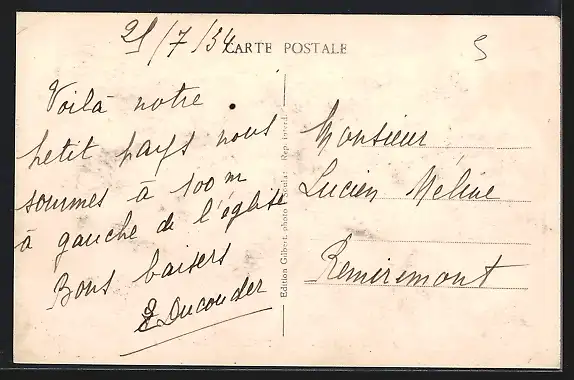 21/7/34
CARTE POSTALE
5
Voilà notre
petit pays nous
sommes à 100 m
à gauche de l'église
Bons baisers
Ducouder
Edition Gilbert, photo Rep. interd.
Monsieur
Lucien Méline
Remiremont